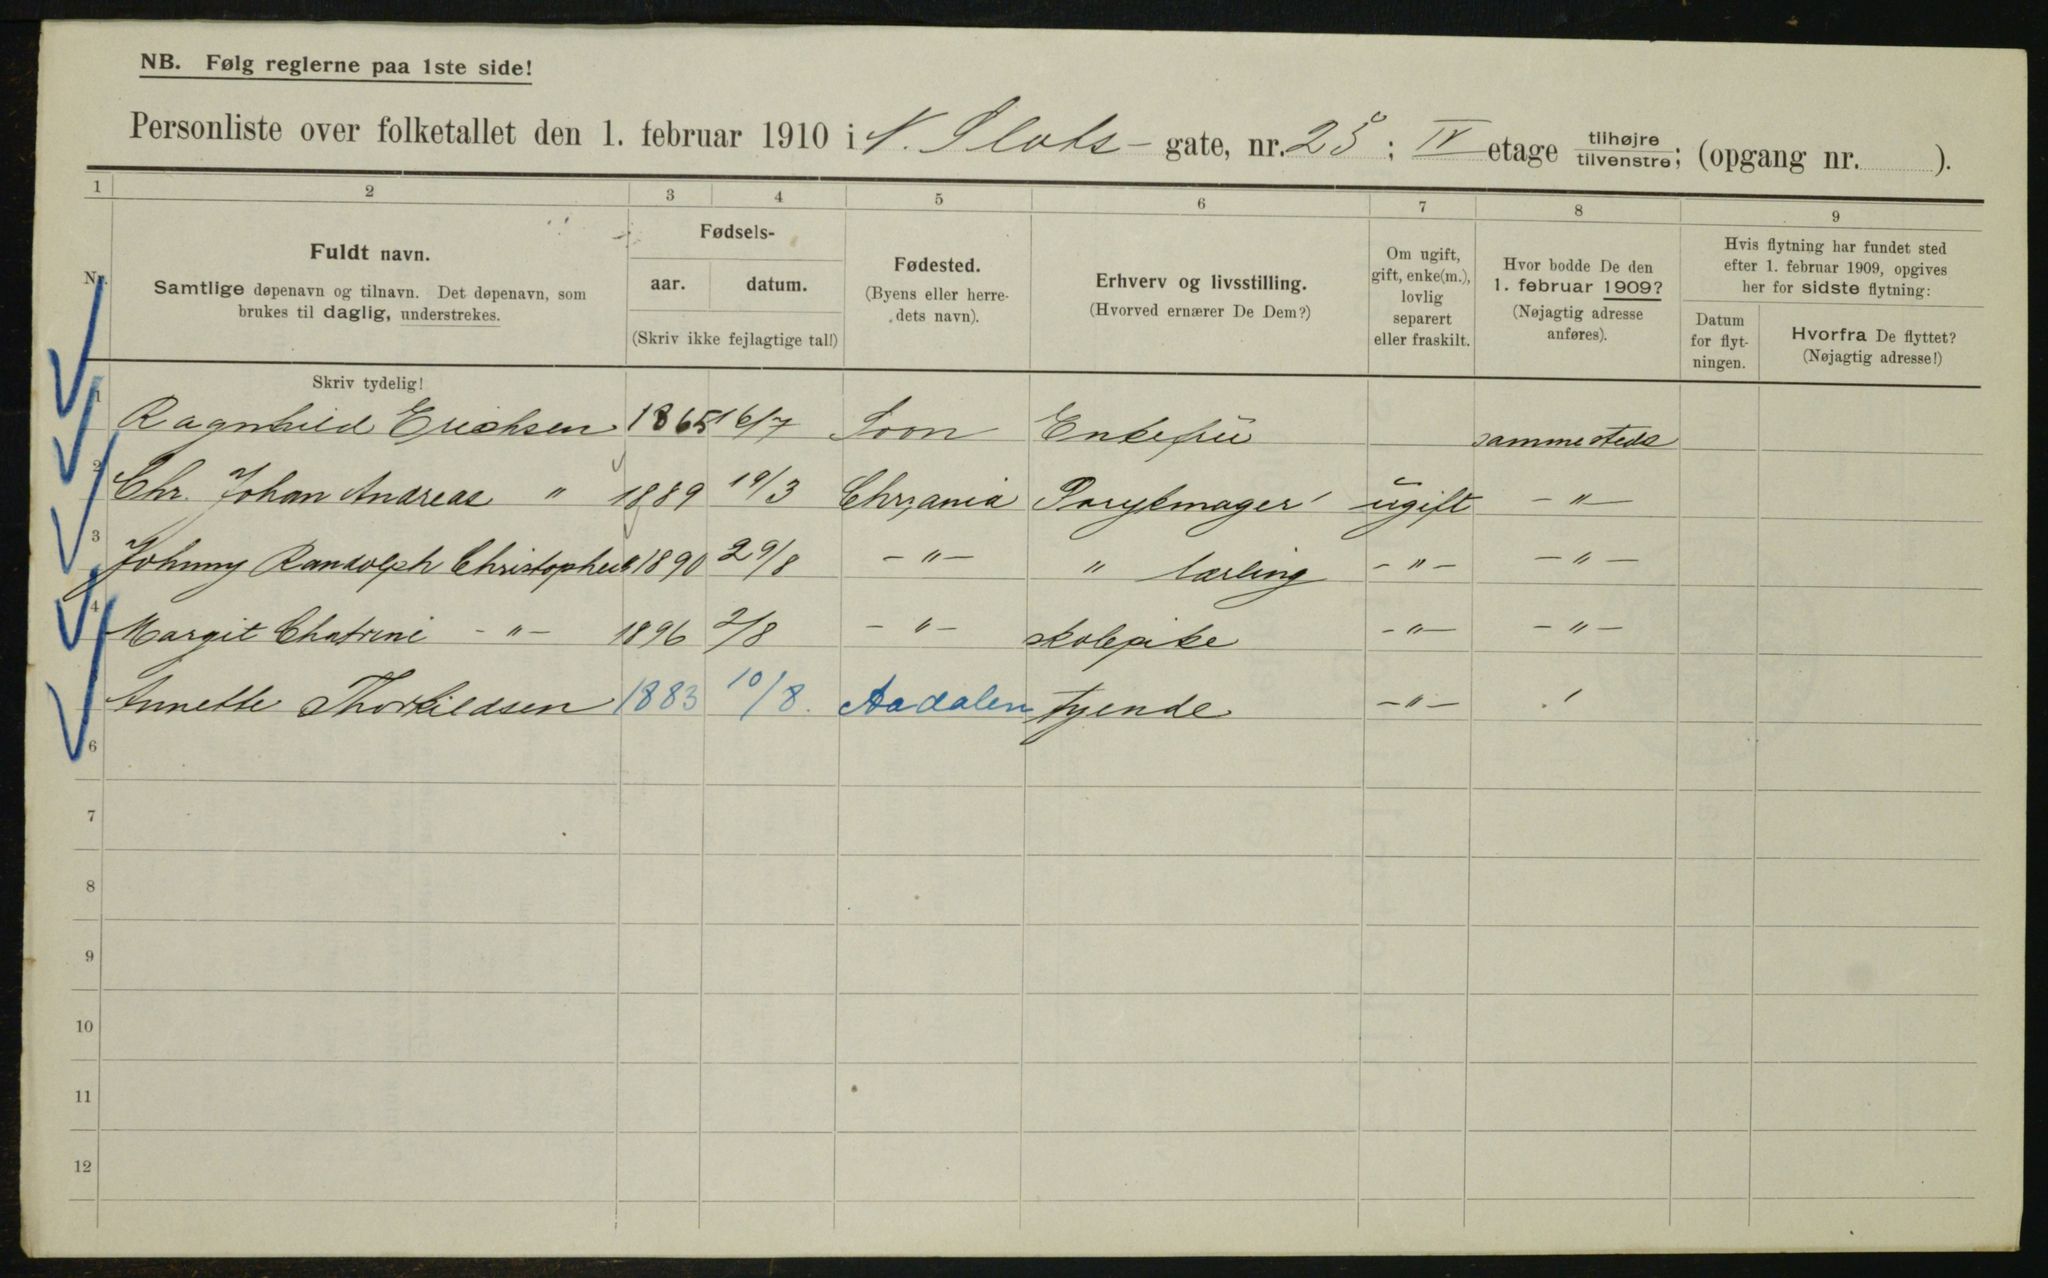 NB. Følg reglerne paa 1ste side!
Personliste over folketallet den 1. februar 1910 i N. Slots- gate, nr. 25; IV etage tilhøjre/tilvenstre; (opgang nr. ).
1 2 3 4 5 6 7 8 9
Nr.
Fuldt navn.
Samtlige døpenavn og tilnavn. Det døpenavn, som
brukes til daglig, understrekes.
Fødsels-
aar. datum.
(Skriv ikke fejlagtige tal!)
Fødested.
(Byens eller herre-
dets navn).
Erhverv og livsstilling.
(Hvorved ernærer De Dem?)
Om ugift,
gift, enke(m.),
lovlig
separert
eller fraskilt.
Hvor bodde De den
1. februar 1909?
(Nøjagtig adresse
anføres).
Hvis flytning har fundet sted
efter 1. februar 1909, opgives
her for sidste flytning:
Datum
for flyt-
ningen.
Hvorfra De flyttet?
(Nøjagtig adresse!)
Skriv tydelig!
1 Ragnhild Erichsen 1865 16/7 Soon Enkefru sammesteds
2 Chr. Johan Andreas " 1889 19/3 Chr,ania ugift -"-
3 Johnny Randolph Christopher " 1890 29/8 -"- " lærling -"- -"-
4 Margit Chatrine -"- 1896 2/8 -"- skolepike -"- -"-
Annette Thorkildsen 1883 10/8. Aadalen tjende -"- "
6
7
8
9
10
11
12